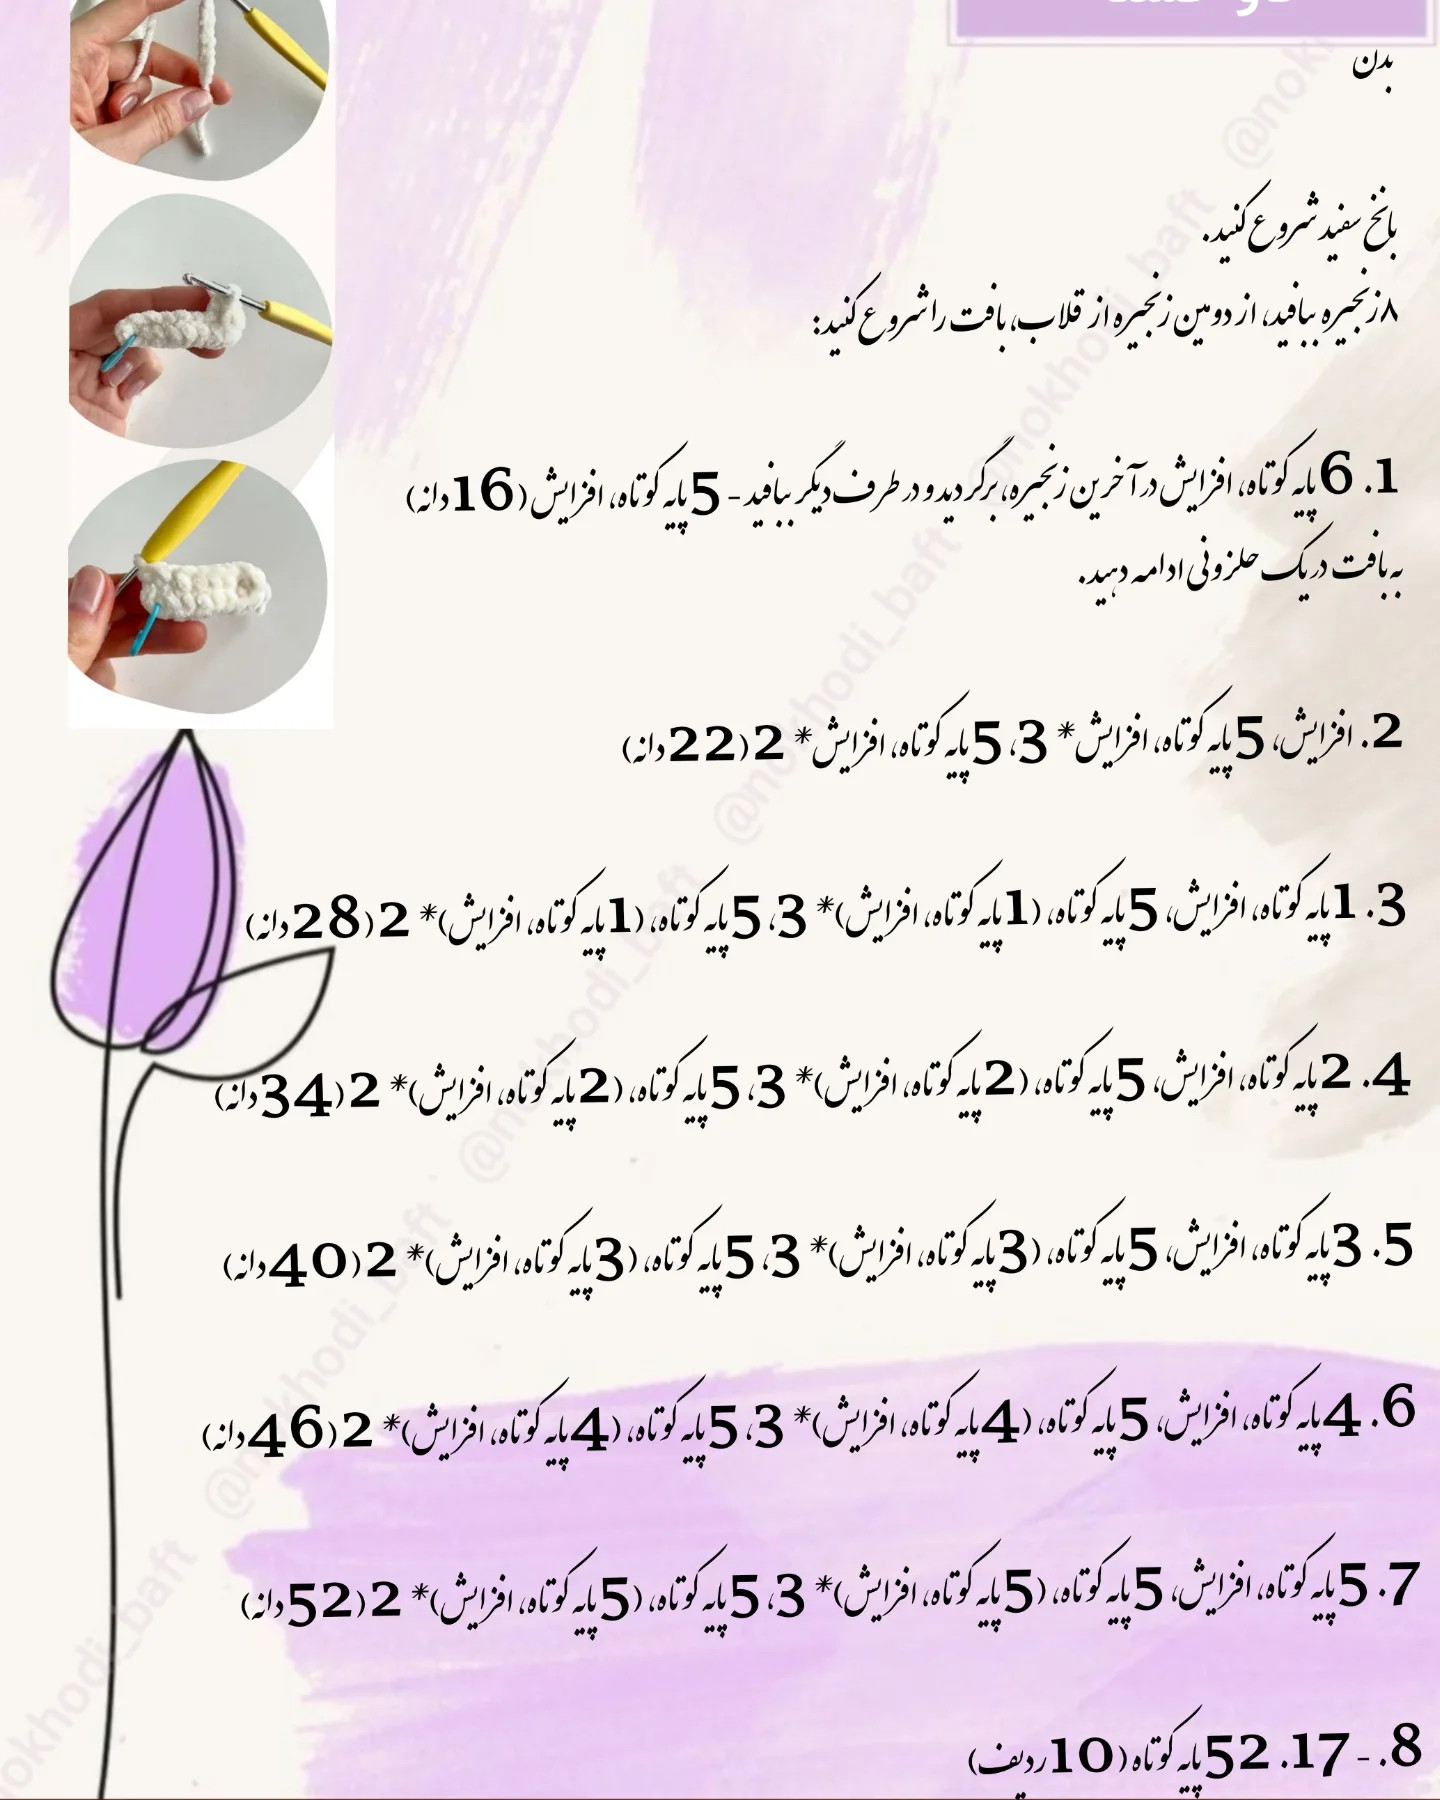 بدن
با نخ سفید شروع کنید.
۸ زنجیره ببافید، از دومین زنجیره از قلاب، بافت را شروع کنید:
1. 6 پایه کوتاه، افزایش در آخرین زنجیره، برگردید و در طرف دیگر ببافید - 5 پایه کوتاه، افزایش (16 دانه)
به بافت در یک حلزونی ادامه دهید.
2. افزایش، 5 پایه کوتاه، افزایش * 3، 5 پایه کوتاه، افزایش * 2 (22 دانه)
3. 1 پایه کوتاه، افزایش، 5 پایه کوتاه، (1 پایه کوتاه، افزایش)* 3، 5 پایه کوتاه، (1 پایه کوتاه، افزایش)* 2 (28 دانه)
4. 2 پایه کوتاه، افزایش، 5 پایه کوتاه، (2 پایه کوتاه، افزایش)* 3، 5 پایه کوتاه، (2 پایه کوتاه، افزایش)* 2 (34 دانه)
5. 3 پایه کوتاه، افزایش، 5 پایه کوتاه، (3 پایه کوتاه، افزایش)* 3، 5 پایه کوتاه، (3 پایه کوتاه، افزایش)* 2 (40 دانه)
6. 4 پایه کوتاه، افزایش، 5 پایه کوتاه، (4 پایه کوتاه، افزایش)* 3، 5 پایه کوتاه، (4 پایه کوتاه، افزایش)* 2 (46 دانه)
7. 5 پایه کوتاه، افزایش، 5 پایه کوتاه، (5 پایه کوتاه، افزایش)* 3، 5 پایه کوتاه، (5 پایه کوتاه، افزایش)* 2 (52 دانه)
8. - 17. 52 پایه کوتاه (10 ردیف)
@nokhodi_baft @nokhodi_baft @nokhodi_baft @nokhodi_baft @nokhodi_baft